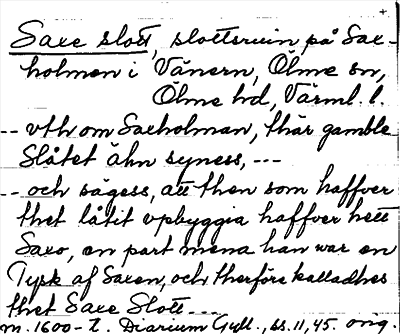 Saxe slott, slottsruin på Sax-
holmen i Vänern, Ölme sn,
Ölme hd, Värml. l.
-- vth om Saxholman, thär gamble
Slåtet ähn syness, ---
-- och sägess, att then som haffver
thet låtit vpbyggia haffver hett
Saxo, en part mena han war en
Tysk af Saxen, och therföre kalladhes
thet Saxe Slott ---
m. 1600-t. Diarium Gyll., bs. 11, 45. orig.